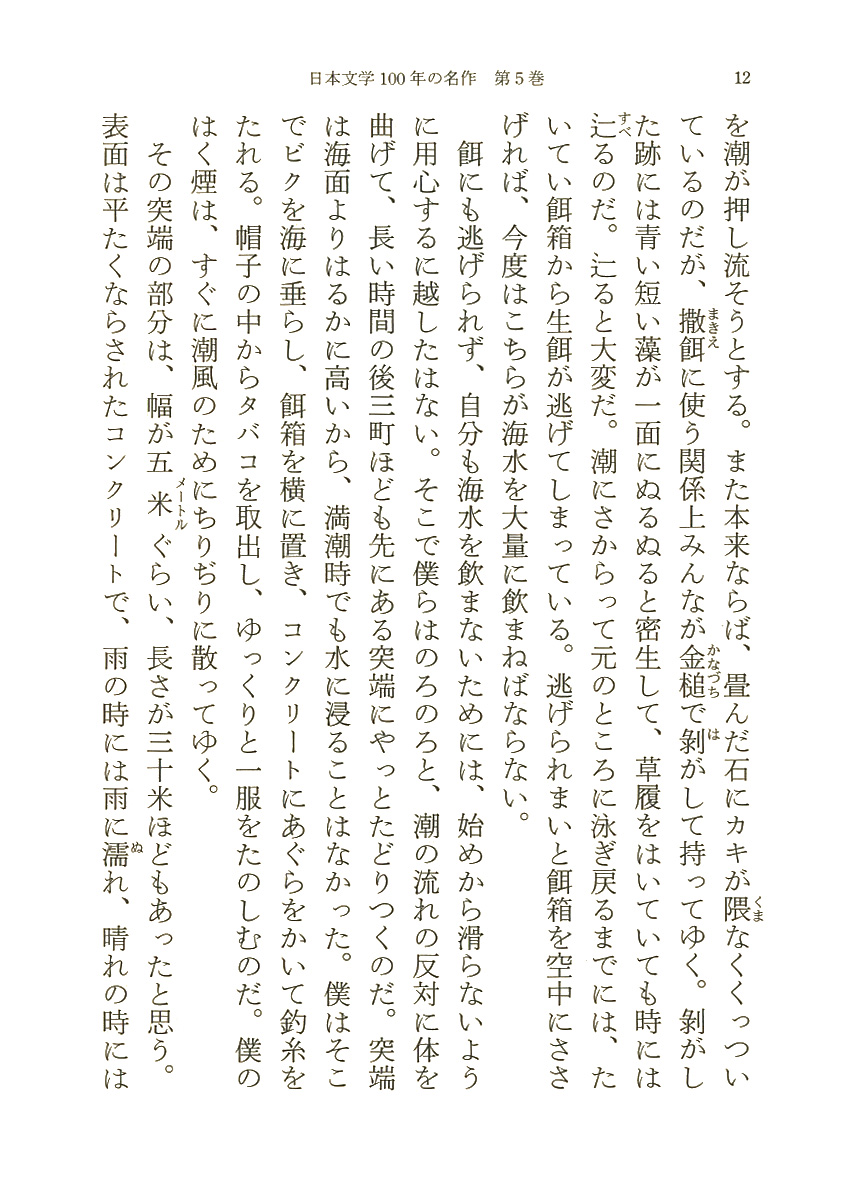 日本文学100年の名作　第5巻
12
を潮が押し流そうとする。また本来ならば、畳んだ石にカキが隈なくくっつい
ているのだが、撒餌に使う関係上みんなが金槌で剝がして持ってゆく。剝がし
た跡には青い短い藻が一面にぬるぬると密生して、草履をはいていても時には
辷るのだ。辷ると大変だ。潮にさからって元のところに泳ぎ戻るまでには、た
いてい餌箱から生餌が逃げてしまっている。逃げられまいと餌箱を空中にささ
げれば、今度はこちらが海水を大量に飲まねばならない。
餌にも逃げられず、自分も海水を飲まないためには、始めから滑らないよう
に用心するに越したはない。そこで僕らはのろのろと、潮の流れの反対に体を
曲げて、長い時間の後三町ほども先にある突端にやっとたどりつくのだ。突端
は海面よりはるかに高いから、満潮時でも水に浸ることはなかった。僕はそこ
でビクを海に垂らし、餌箱を横に置き、コンクリートにあぐらをかいて釣糸を
たれる。帽子の中からタバコを取出し、ゆっくりと一服をたのしむのだ。僕の
はく煙は、すぐに潮風のためにちりぢりに散ってゆく。
その突端の部分は、幅が五米ぐらい、長さが三十米ほどもあったと思う。
表面は平たくならされたコンクリートで、雨の時には雨に濡れ、晴れの時には